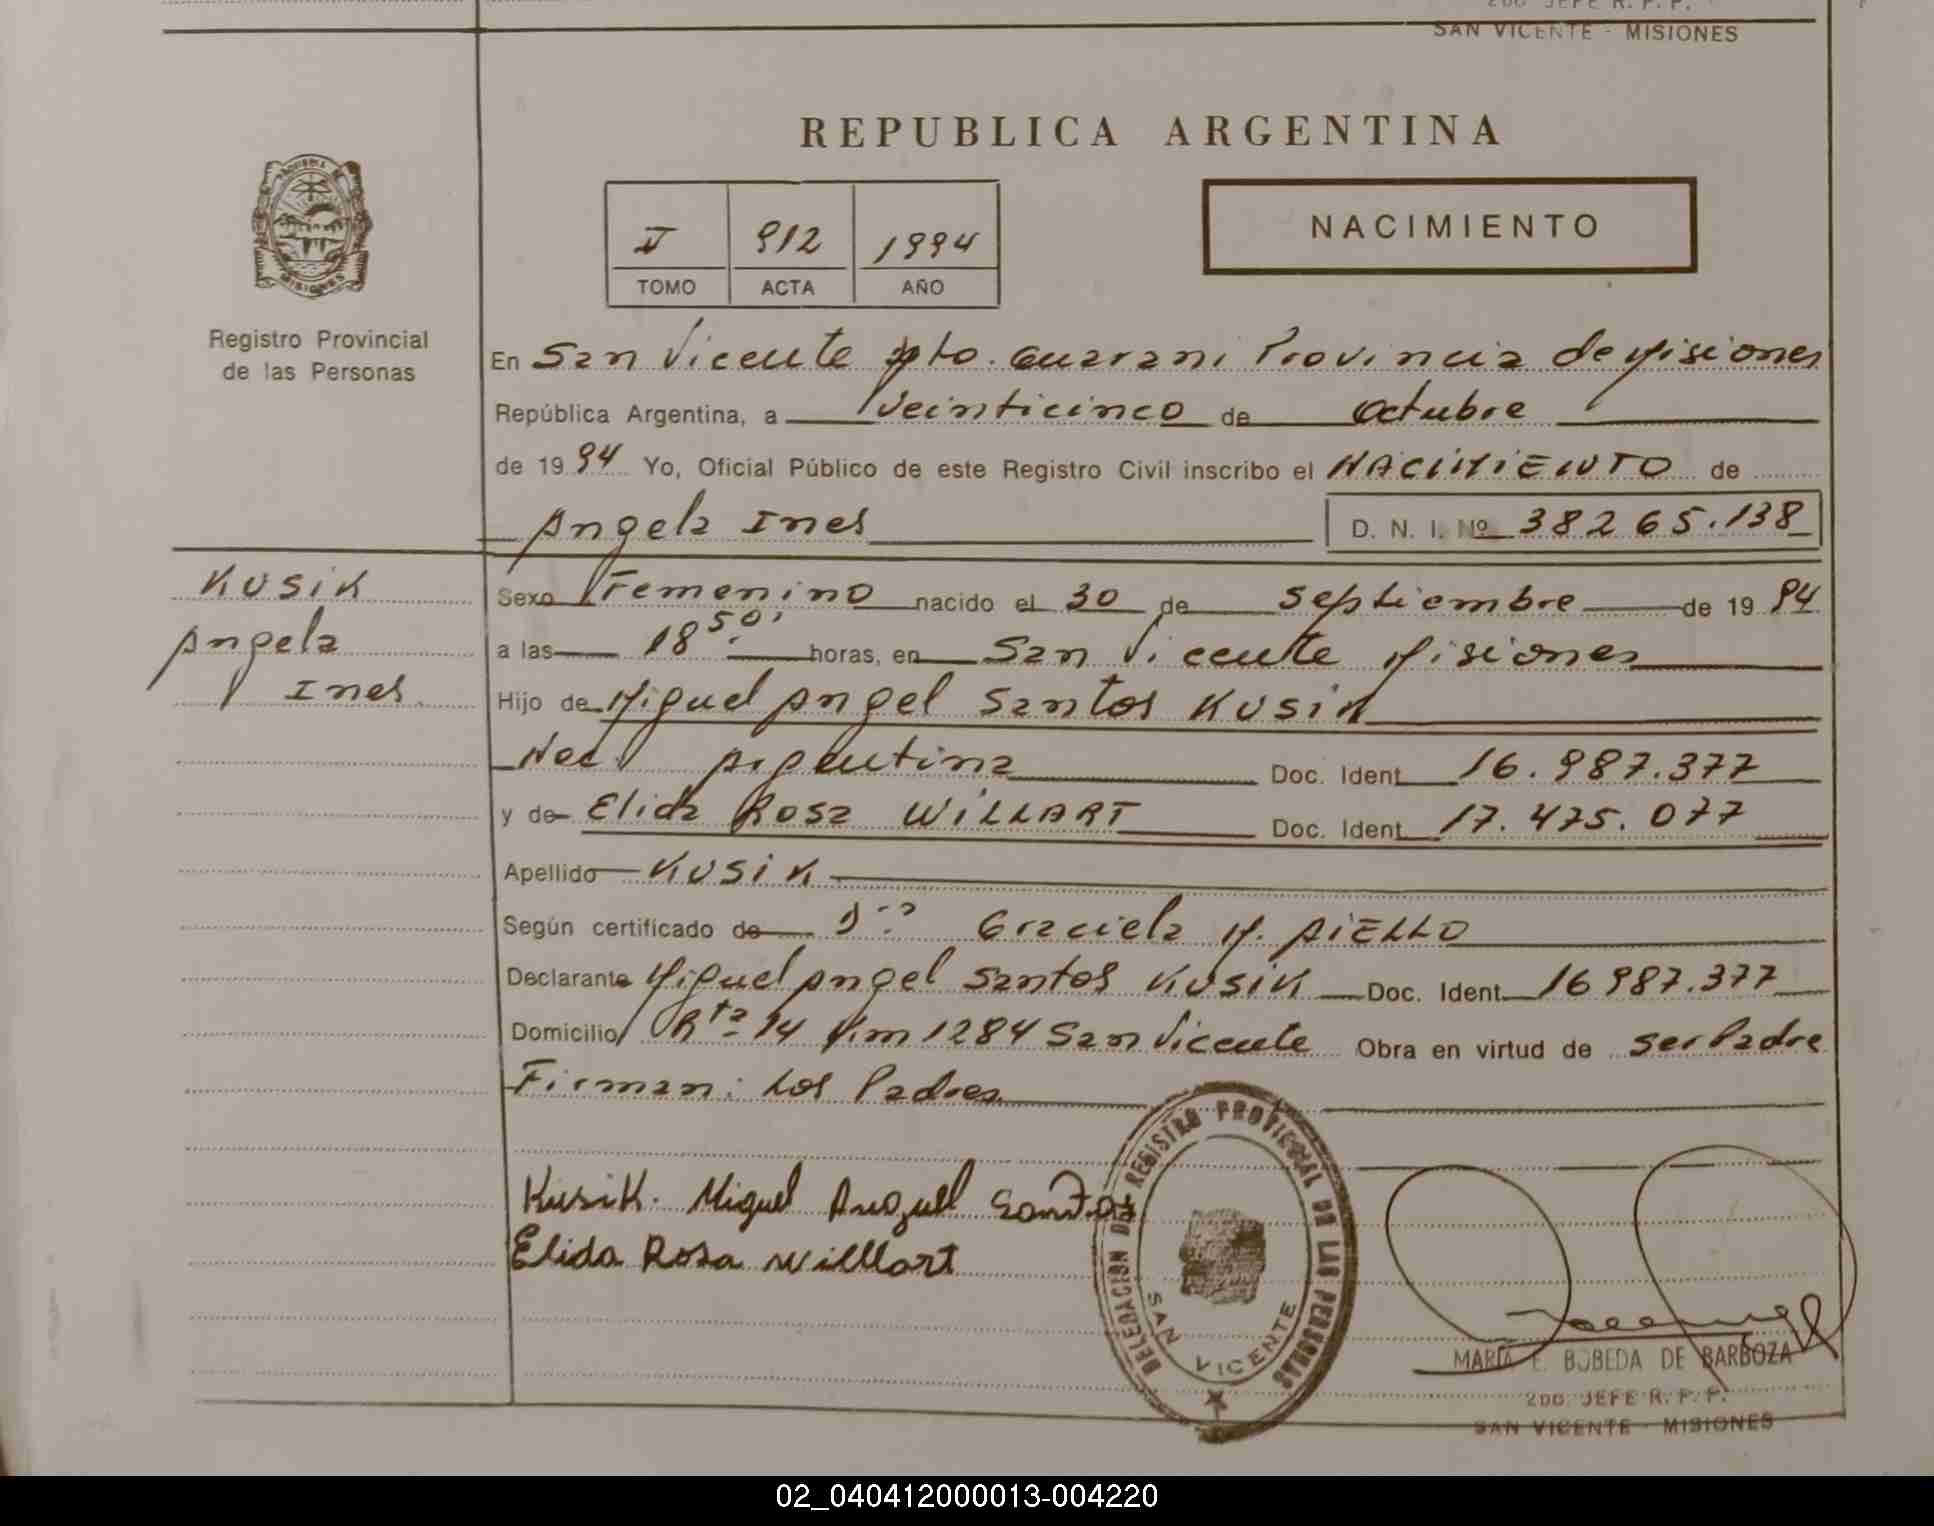 2DO JEFE R. P. P.
SAN VICENTE - MISIONES
REPUBLICA ARGENTINA
PROVINCIA
MISIONES
Registro Provincial
de las Personas
II 912 1994
TOMO ACTA AÑO
NACIMIENTO
En San Vicente Dpto. Guarani Provincia de Misiones
República Argentina, a veinticinco de Octubre
de 1994 Yo, Oficial Público de este Registro Civil inscribo el NACIMIENTO de
Angela Ines D. N. I. Nº 38265.138
KUSIK
Angela
Ines
Sexo Femenino nacido el 30 de Septiembre de 1994
a las 18 50' horas, en San Vicente Misiones
Hijo de Miguel Angel Santos KUSIK
Nac Argentina Doc. Ident 16.987.377
y de Elida Rosa WILLART Doc. Ident 17.475.077
Apellido KUSIK
Según certificado de Graciela M. AIELLO
Declarante Miguel Angel Santos KUSIK Doc. Ident 16987.377
Domicilio Rta 14 Km 1284 San Vicente Obra en virtud de ser Padre
Firman: Los Padres
Kusik. Miguel Anguel Santos
Elida Rosa Willlart
DELEGACION DE REGISTRO PROVINCIAL DE LAS PERSONAS
SAN VICENTE
MARIA E. BOBEDA DE BARBOZA
2DO JEFE R. P. P.
SAN VICENTE - MISIONES
02_040412000013-004220